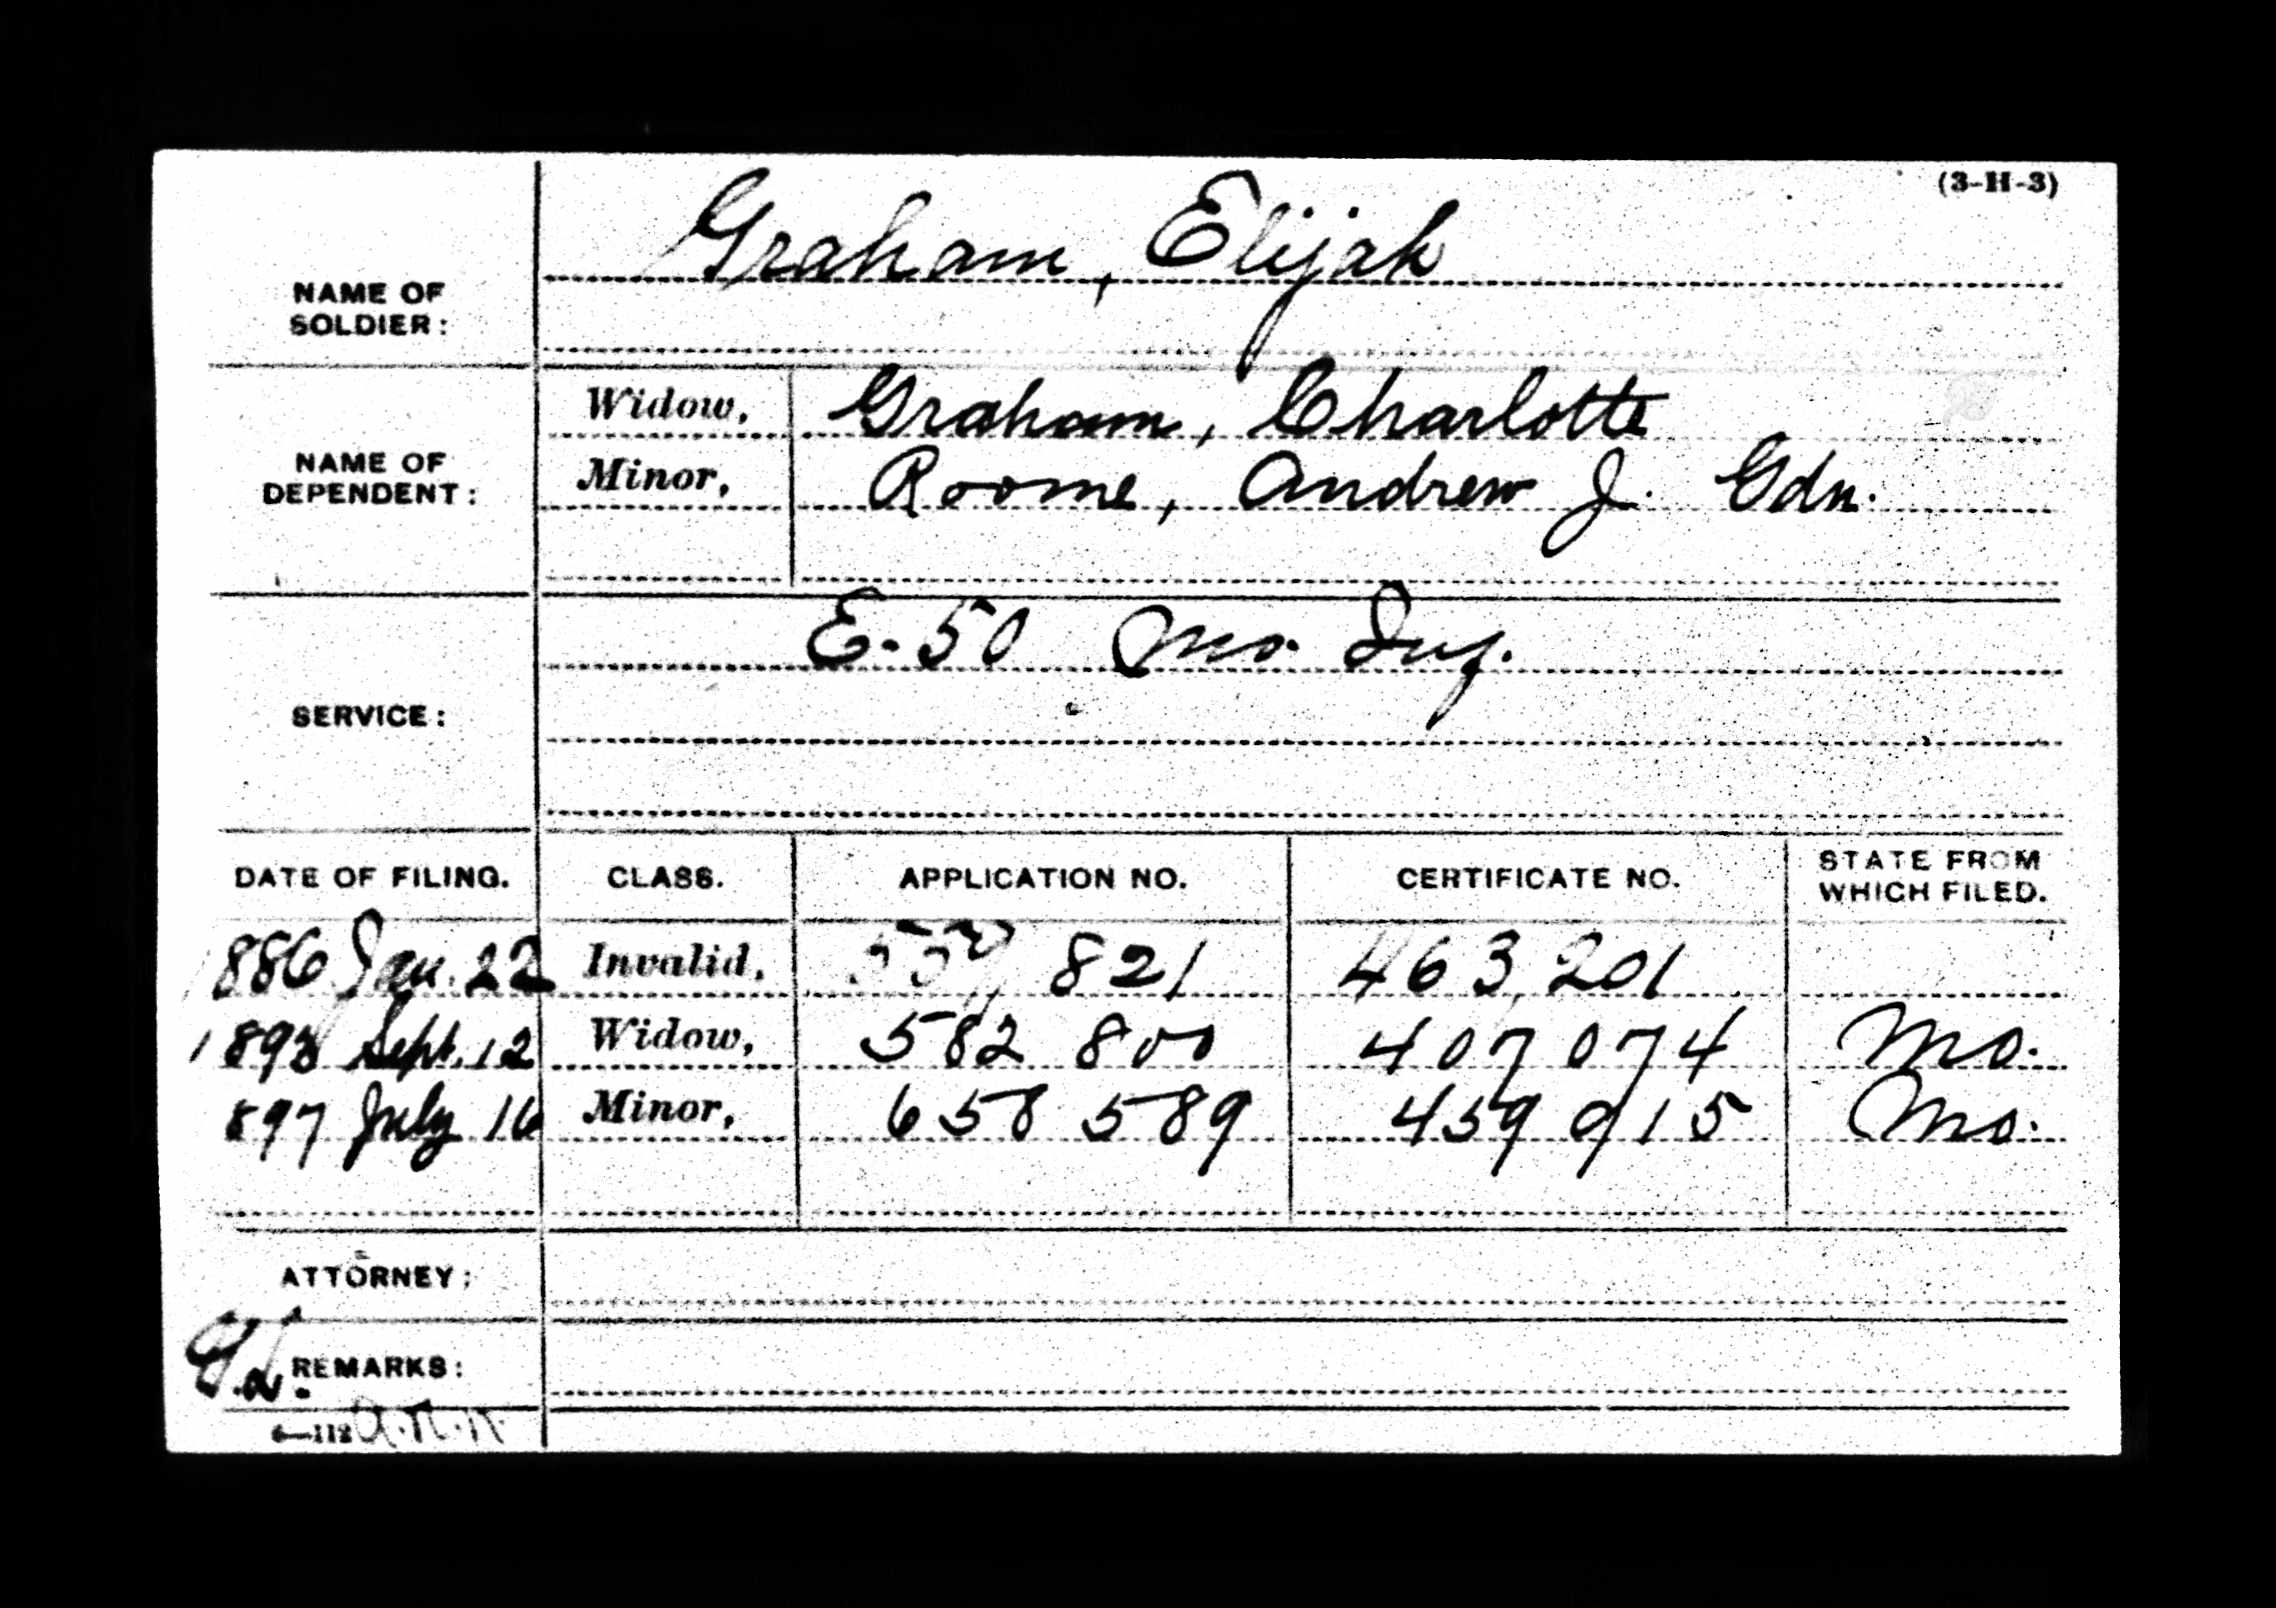 (3-H-3)
Graham, Elijah
NAME OF
SOLDIER:
Widow, Graham, Charlotte
NAME OF
DEPENDENT:
Minor, Roome, Andrew J. Gdn.
E. 50 Mo. Inf.
SERVICE:
DATE OF FILING. CLASS. APPLICATION NO. CERTIFICATE NO. STATE FROM
WHICH FILED.
1886 Jan. 22 Invalid, 821 463,201
1893 Sept. 12 Widow, 582 800 407 074 Mo.
897 July 16 Minor, 658 589 459 915 Mo.
ATTORNEY:
REMARKS: